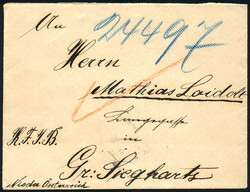 An
24497
Herrn
Mathias Laidolt
in
Gr: Sieghart
Nieder Österreich